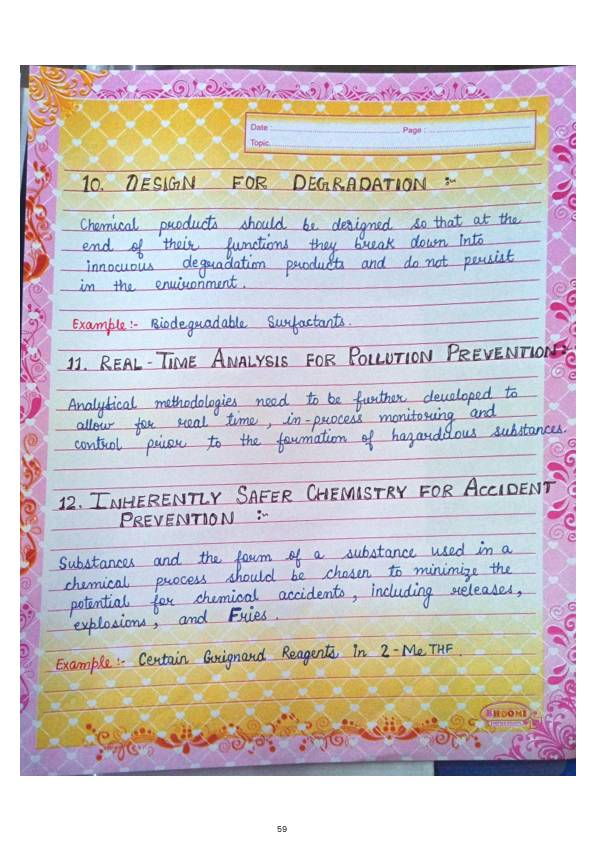 Date : Page :
Topic
10. DESIGN FOR DEGRADATION :-
Chemical products should be designed so that at the
end of their functions they break down into
innocuous degradation products and do not persist
in the environment.
Example :- Biodegradable Surfactants.
11. REAL-TIME ANALYSIS FOR POLLUTION PREVENTION:-
Analytical methodologies need to be further developed to
allow for real time, in-process monitoring and
control prior to the formation of hazarddous substances.
12. INHERENTLY SAFER CHEMISTRY FOR ACCIDENT
PREVENTION :-
Substances and the form of a substance used in a
chemical process should be chosen to minimize the
potential for chemical accidents, including releases,
explosions, and Fries.
Example :- Certain Grignard Reagents in 2-Me THF.
BHOOMI
59